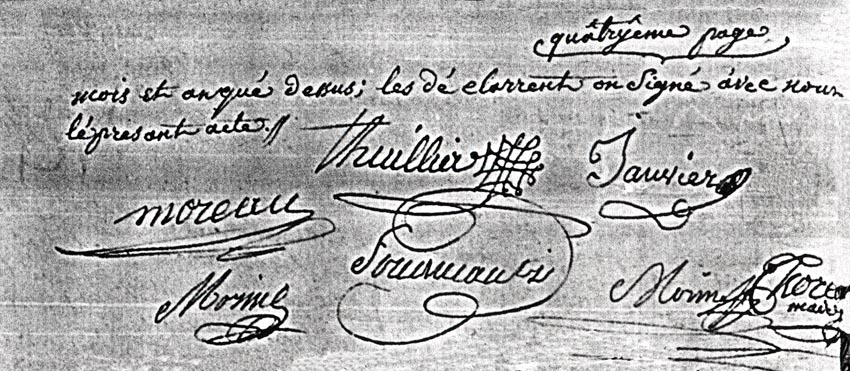 quâtryême page
mois et an qué dessus; les dé clarrent on Signé avec nous
lé présant acte.//
Thuillier Janvier
moreau
Morin
maire